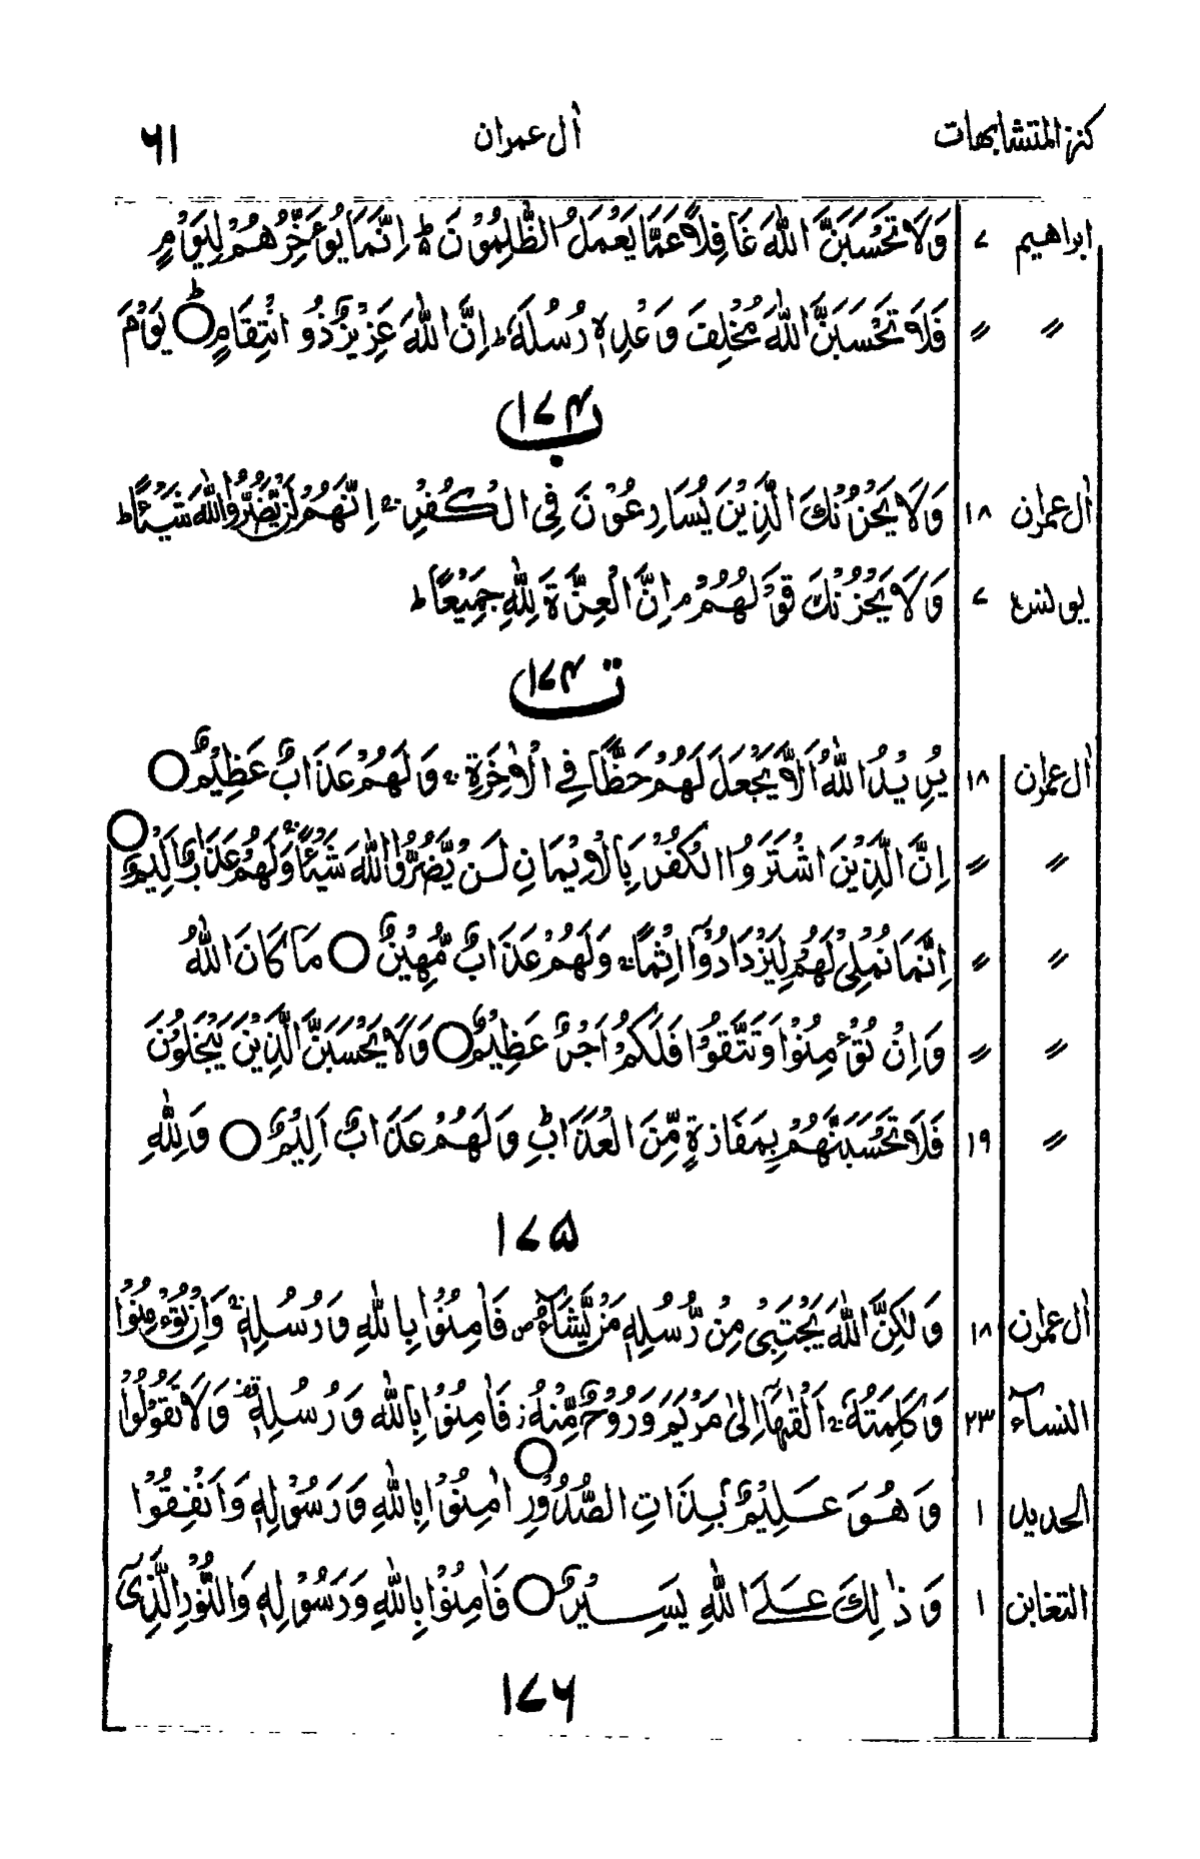 كنز المتشابهات اٰل عمران ٦١
ابراهيم ٧ وَلَا تَحْسَبَنَّ اللّٰهَ غَافِلًا عَمَّا يَعْمَلُ الظّٰلِمُوْنَ ؕ اِنَّمَا يُؤَخِّرُهُمْ لِيَوْمٍ
〃 〃 فَلَا تَحْسَبَنَّ اللّٰهَ مُخْلِفَ وَعْدِهٖ رُسُلَهٗ ؕ اِنَّ اللّٰهَ عَزِيْزٌ ذُو انْتِقَامٍ ○ؕ يَوْمَ
ب ١٧٤
اٰل عمرٰن ١٨ وَلَا يَحْزُنْكَ الَّذِيْنَ يُسَارِعُوْنَ فِى الْكُفْرِ ۚ اِنَّهُمْ لَنْ يَّضُرُّوا اللّٰهَ شَيْـًٔا ؕ
يونس ٧ وَلَا يَحْزُنْكَ قَوْلُهُمْ ۘ اِنَّ الْعِزَّةَ لِلّٰهِ جَمِيْعًا ؕ
ت ١٧٤
اٰل عمرٰن ١٨ يُرِيْدُ اللّٰهُ اَلَّا يَجْعَلَ لَهُمْ حَظًّا فِى الْاٰخِرَةِ ۚ وَلَهُمْ عَذَابٌ عَظِيْمٌ ○
〃 〃 اِنَّ الَّذِيْنَ اشْتَرَوُا الْكُفْرَ بِالْاِيْمَانِ لَنْ يَّضُرُّوا اللّٰهَ شَيْـًٔا ۚ وَلَهُمْ عَذَابٌ اَلِيْمٌ ○
〃 〃 اِنَّمَا نُمْلِىْ لَهُمْ لِيَزْدَادُوْٓا اِثْمًا ۚ وَلَهُمْ عَذَابٌ مُّهِيْنٌ ○ مَا كَانَ اللّٰهُ
〃 〃 وَاِنْ تُؤْمِنُوْا وَتَتَّقُوْا فَلَكُمْ اَجْرٌ عَظِيْمٌ ○ وَلَا يَحْسَبَنَّ الَّذِيْنَ يَبْخَلُوْنَ
〃 ١٩ فَلَا تَحْسَبَنَّهُمْ بِمَفَازَةٍ مِّنَ الْعَذَابِ ۚ وَلَهُمْ عَذَابٌ اَلِيْمٌ ○ وَلِلّٰهِ
١٧٥
اٰل عمرٰن ١٨ وَلٰكِنَّ اللّٰهَ يَجْتَبِىْ مِنْ رُّسُلِهٖ مَنْ يَّشَآءُ ۖ فَاٰمِنُوْا بِاللّٰهِ وَرُسُلِهٖ ۚ وَاِنْ تُؤْمِنُوْا
النسآء ٢٣ وَكَلِمَتُهٗ ۚ اَلْقٰىهَآ اِلٰى مَرْيَمَ وَرُوْحٌ مِّنْهُ ؗ فَاٰمِنُوْا بِاللّٰهِ وَرُسُلِهٖ ۚ وَلَا تَقُوْلُوْا
الحديد ١ وَهُوَ عَلِيْمٌۢ بِذَاتِ الصُّدُوْرِ ○ اٰمِنُوْا بِاللّٰهِ وَرَسُوْلِهٖ وَاَنْفِقُوْا
التغابن ١ وَذٰلِكَ عَلَى اللّٰهِ يَسِيْرٌ ○ فَاٰمِنُوْا بِاللّٰهِ وَرَسُوْلِهٖ وَالنُّوْرِ الَّذِىْٓ
١٧٦